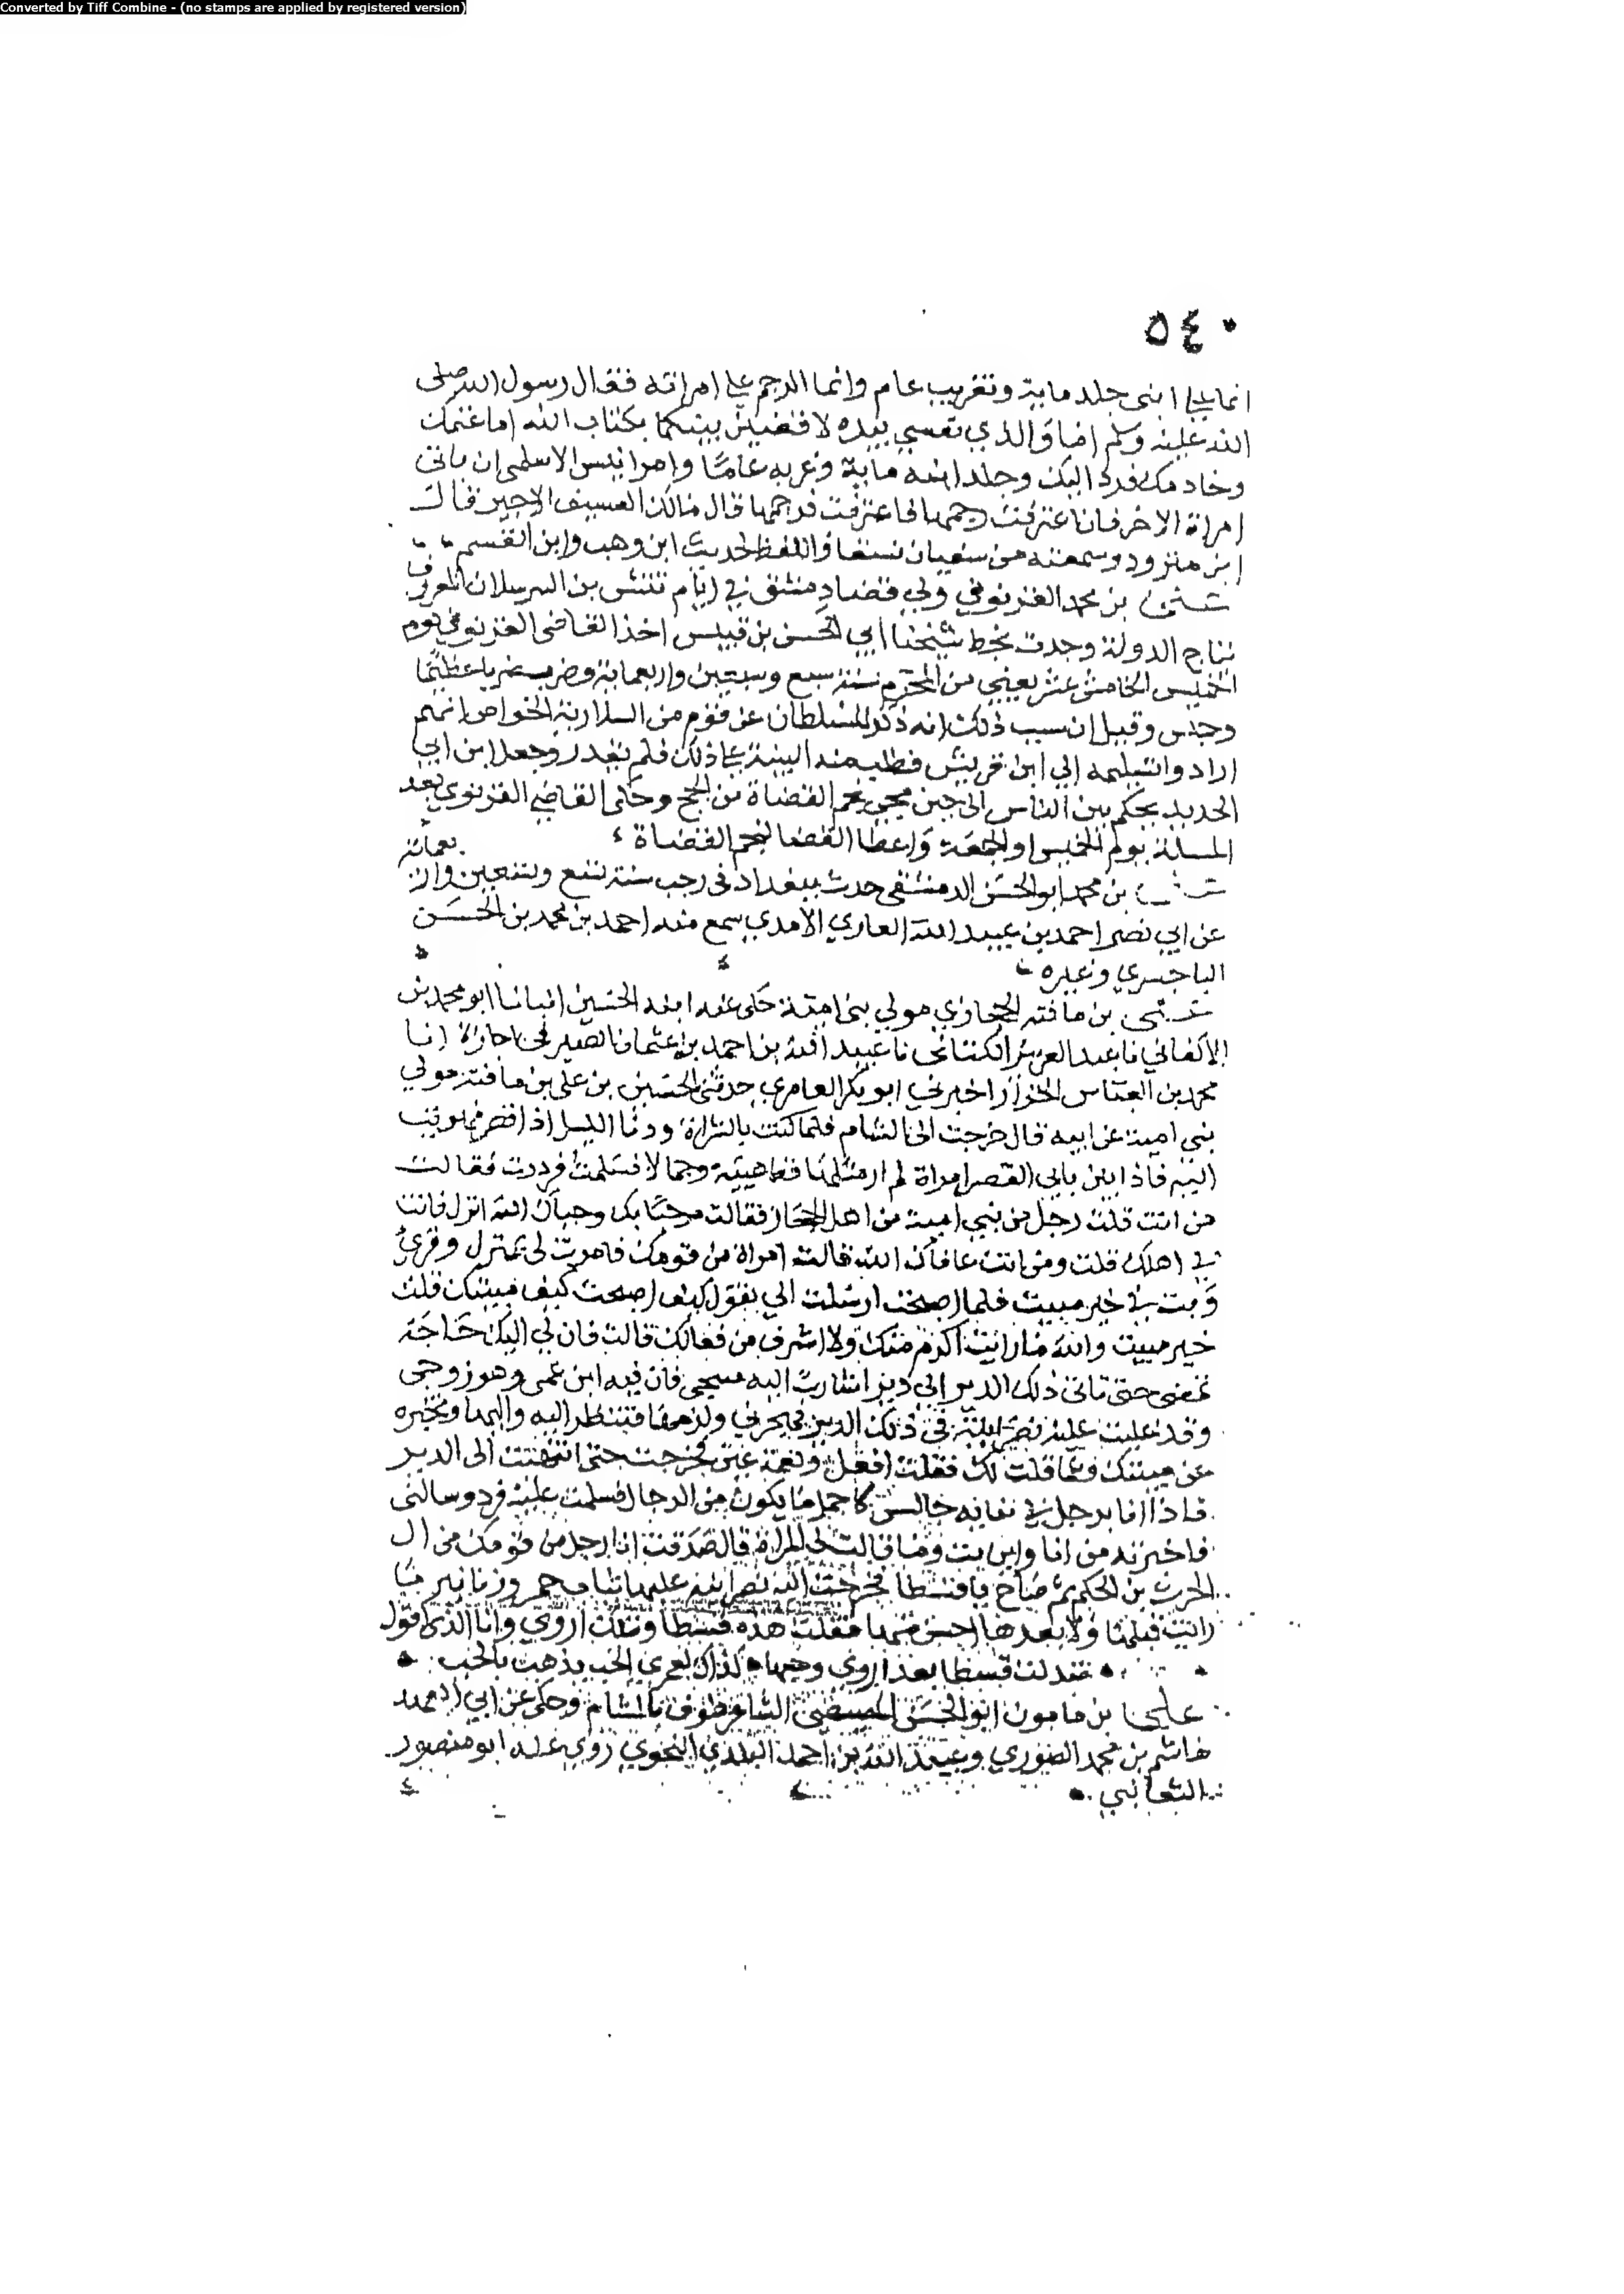 Converted by Tiff Combine - (no stamps are applied by registered version)
٥٤٠
انما على ابنى جلد ماية وتغريب عام وانما الرجم على امراته فقال رسول الله صلى
الله عليه وسلم اما والذي نفسي بيده لاقضين بينكما بكتاب الله اما غنمك
وخادمك فرد اليك وجلد ابنه ماية وغربه عاما وامر انيس الاسلمى ان ياتى
امراة الاخر فان اعترفت رجمها فاعترفت فرجمها قال مالك العسيف الاجير قال
ابن وسمعته من سفيان واللفظ لحديث ابن وهب وابن القسم
بن محمد الغزنوي ولي قضا دمشق في ايام تتش بن الب رسلان المعروف
بتاج الدولة وجدت بخط شيخنا ابي الحسن بن قبيس اخذ القاضى الغزنوي يوم
الخميس الخامس عشر يعني من المحرم سنة سبع وسبعين واربعماية وضرب ضربا عظيما
وحبس وقيل ان سبب ذلك انه ذكر للسلطان عن قوم من الخواص انهم
ارادوا تسليمه الي ابن قريش فطلب منه البينة على ذلك فلم يقدر وجعل ابن ابي
الحديد يحكم بين الناس الى حين مجي نجم القضاة من الحج وخلى القاضي الغزنوي بعد
المسلة يوم الخميس والجمعة واعطا القضا لنجم القضاة
بن محمد ابو الحسن الدمشقى حدث ببغداد فى رجب سنة تسع وتسعين واربعمائة
عن ابي نصر احمد بن عبيد الله الامدي سمع منه احمد بن محمد بن الحسن
الباجسري وغيره
بن مافنه الحجازي مولي بنى امية حكى عنه ابنه الحسين انبانا ابو محمد بن
الاكفاني نا عبد العزيز الكتانى نا عبيد الله بن احمد بن عثمان الصيرفى اجازة انا
محمد بن العباس الخزاز اخبرني ابو بكر العامري حدثنى الحسين بن على بن مافنه مولي
بني امية عن ابيه قال خرجت الى الشام فلما كنت بالشراة ودنا الليل اذا قصر فهويت
اليه فاذا بين بابي القصر امراة لم ار مثلها قط هيئة وجمالا فسلمت فردت فقالت
من انت قلت رجل من بني امية من اهل الحجاز فقالت مرحبا بك وحياك الله انزل فانت
في اهلك قلت ومن انت عافاك الله قالت امراة من قومك فامرت لى بمنزل وقرى
وبت في خير مبيت فلما اصبحت ارسلت الي تقول كيف اصبحت كيف مبيتك قلت
خير مبيت والله ما رايت اكرم منك ولا اشرف من فعالك قالت فان لي اليك حاجة
تمضى حتى تاتى ذلك الدير الي دير اشارت اليه فان فيه ابن عمى وهو زوجى
وقد غلبت عليه نصرانية فى ذلك الدير فهجرني ولزمها فتنظر اليه واليها وتخبره
عن مبيتك وعما قلت لك فقلت افعل ونعمة عين فخرجت حتى انتهيت الى الدير
فاذا انا برجل في جالس كاجمل ما يكون من الرجال فسلمت عليه فرد وسالنى
فاخبرته من انا واين بت وما قالت لى المراة قال صدقت انا رجل من قومك من ال
الحرث بن الحكم ثم صاح يا قسطا فخرجت اليه نصرانية عليها ثياب حمر وزنانير ما
رايت قبلها ولا بعدها احسن منها فقلت هذه قسطا وتلك اروي وانا الذى اقول
تبدلت قسطا بعد اروي وحبها كذاك لعمري الحب يذهب بالحب
علي بن مامون ابو الحسن المصيصى الشاعر طوف بالشام وحكى عن ابي
هاشم بن محمد الصوري وعبد الله بن احمد البلدي النحوي روي عنه ابو منصور
الثعالبي